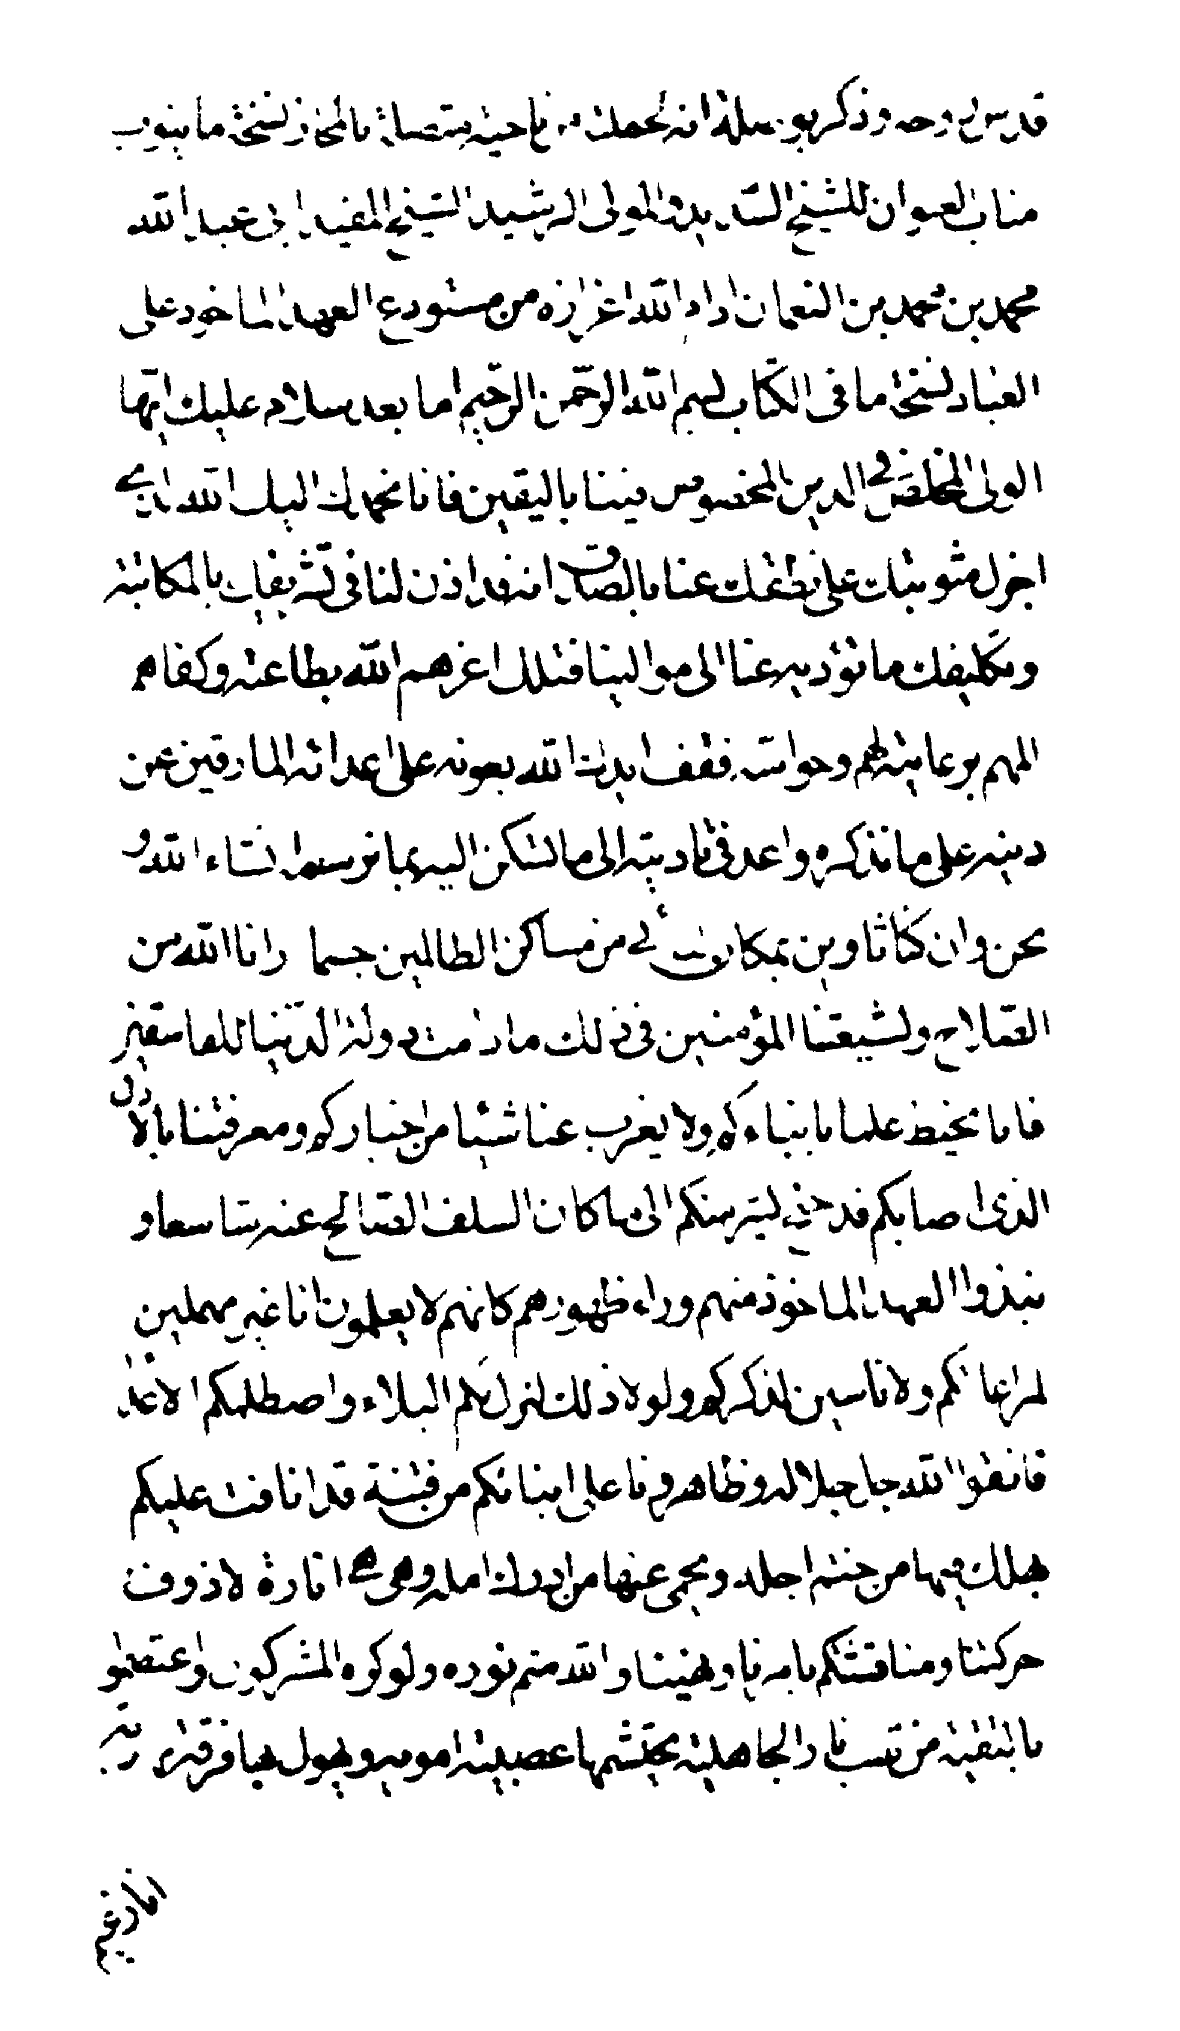 قدس روحه وذكر موصله انه تحمله من ناحية متصلة بالحجاز نسخته ما ينوب
مناب العنوان للشيخ السديد والمولى الرشيد الشيخ المفيد ابي عبد الله
محمد بن محمد بن النعمان ادام الله اعزازه من مستودع العهد الماخوذ على
العباد نسخة ما في الكتاب بسم الله الرحمن الرحيم اما بعد سلام عليك ايها
الولي المخلص في الدين المخصوص فينا باليقين فانا نحمد اليك الله الذي
اجزل مثوبتك على نطقك عنا بالصدق انه قد اذن لنا في تشريفك بالمكاتبة
وتكليفك ما تؤديه عنا الى موالينا قبلك اعزهم الله بطاعته وكفاهم
المهم برعايته لهم وحراسته فقف ايدك الله بعونه على اعدائه المارقين عن
دينه على ما نذكره واعد في تاديته الى من تسكن اليه بما نرسمه ان شاء الله و
نحن وان كنا ثاوين بمكاننا النائي من مساكن الظالمين حسما رانا الله من
الصلاح ولشيعتنا المؤمنين في ذلك ما دامت دولة الدنيا للفاسقين
فانا نحيط علما بانبائكم ولا يعزب عنا شيئا من اخباركم ومعرفتنا بالاذل
الذي اصابكم قد جنح كثير منكم الى ما كان السلف الصالح عنه شاسعا و
نبذوا العهد الماخوذ منهم وراء ظهورهم كانهم لا يعلمون انا غير مهملين
لمراعاتكم ولا ناسين لذكركم ولولا ذلك لنزل بكم البلاء واصطلمكم الاعداء
فاتقوا الله جل جلاله وظاهرونا على انبائكم من فتنة قد انافت عليكم
يهلك فيها من حتم اجله ويحمى عنها من ادرك امله وهي امارة لازوف
حركتنا ومنافثتكم بامرنا ونهينا والله متم نوره ولو كره المشركون واعتصموا
بالتقية من شب نار الجاهلية يحششها عصبية اموية ويهول بها فرقة مهدية
انا زعيم